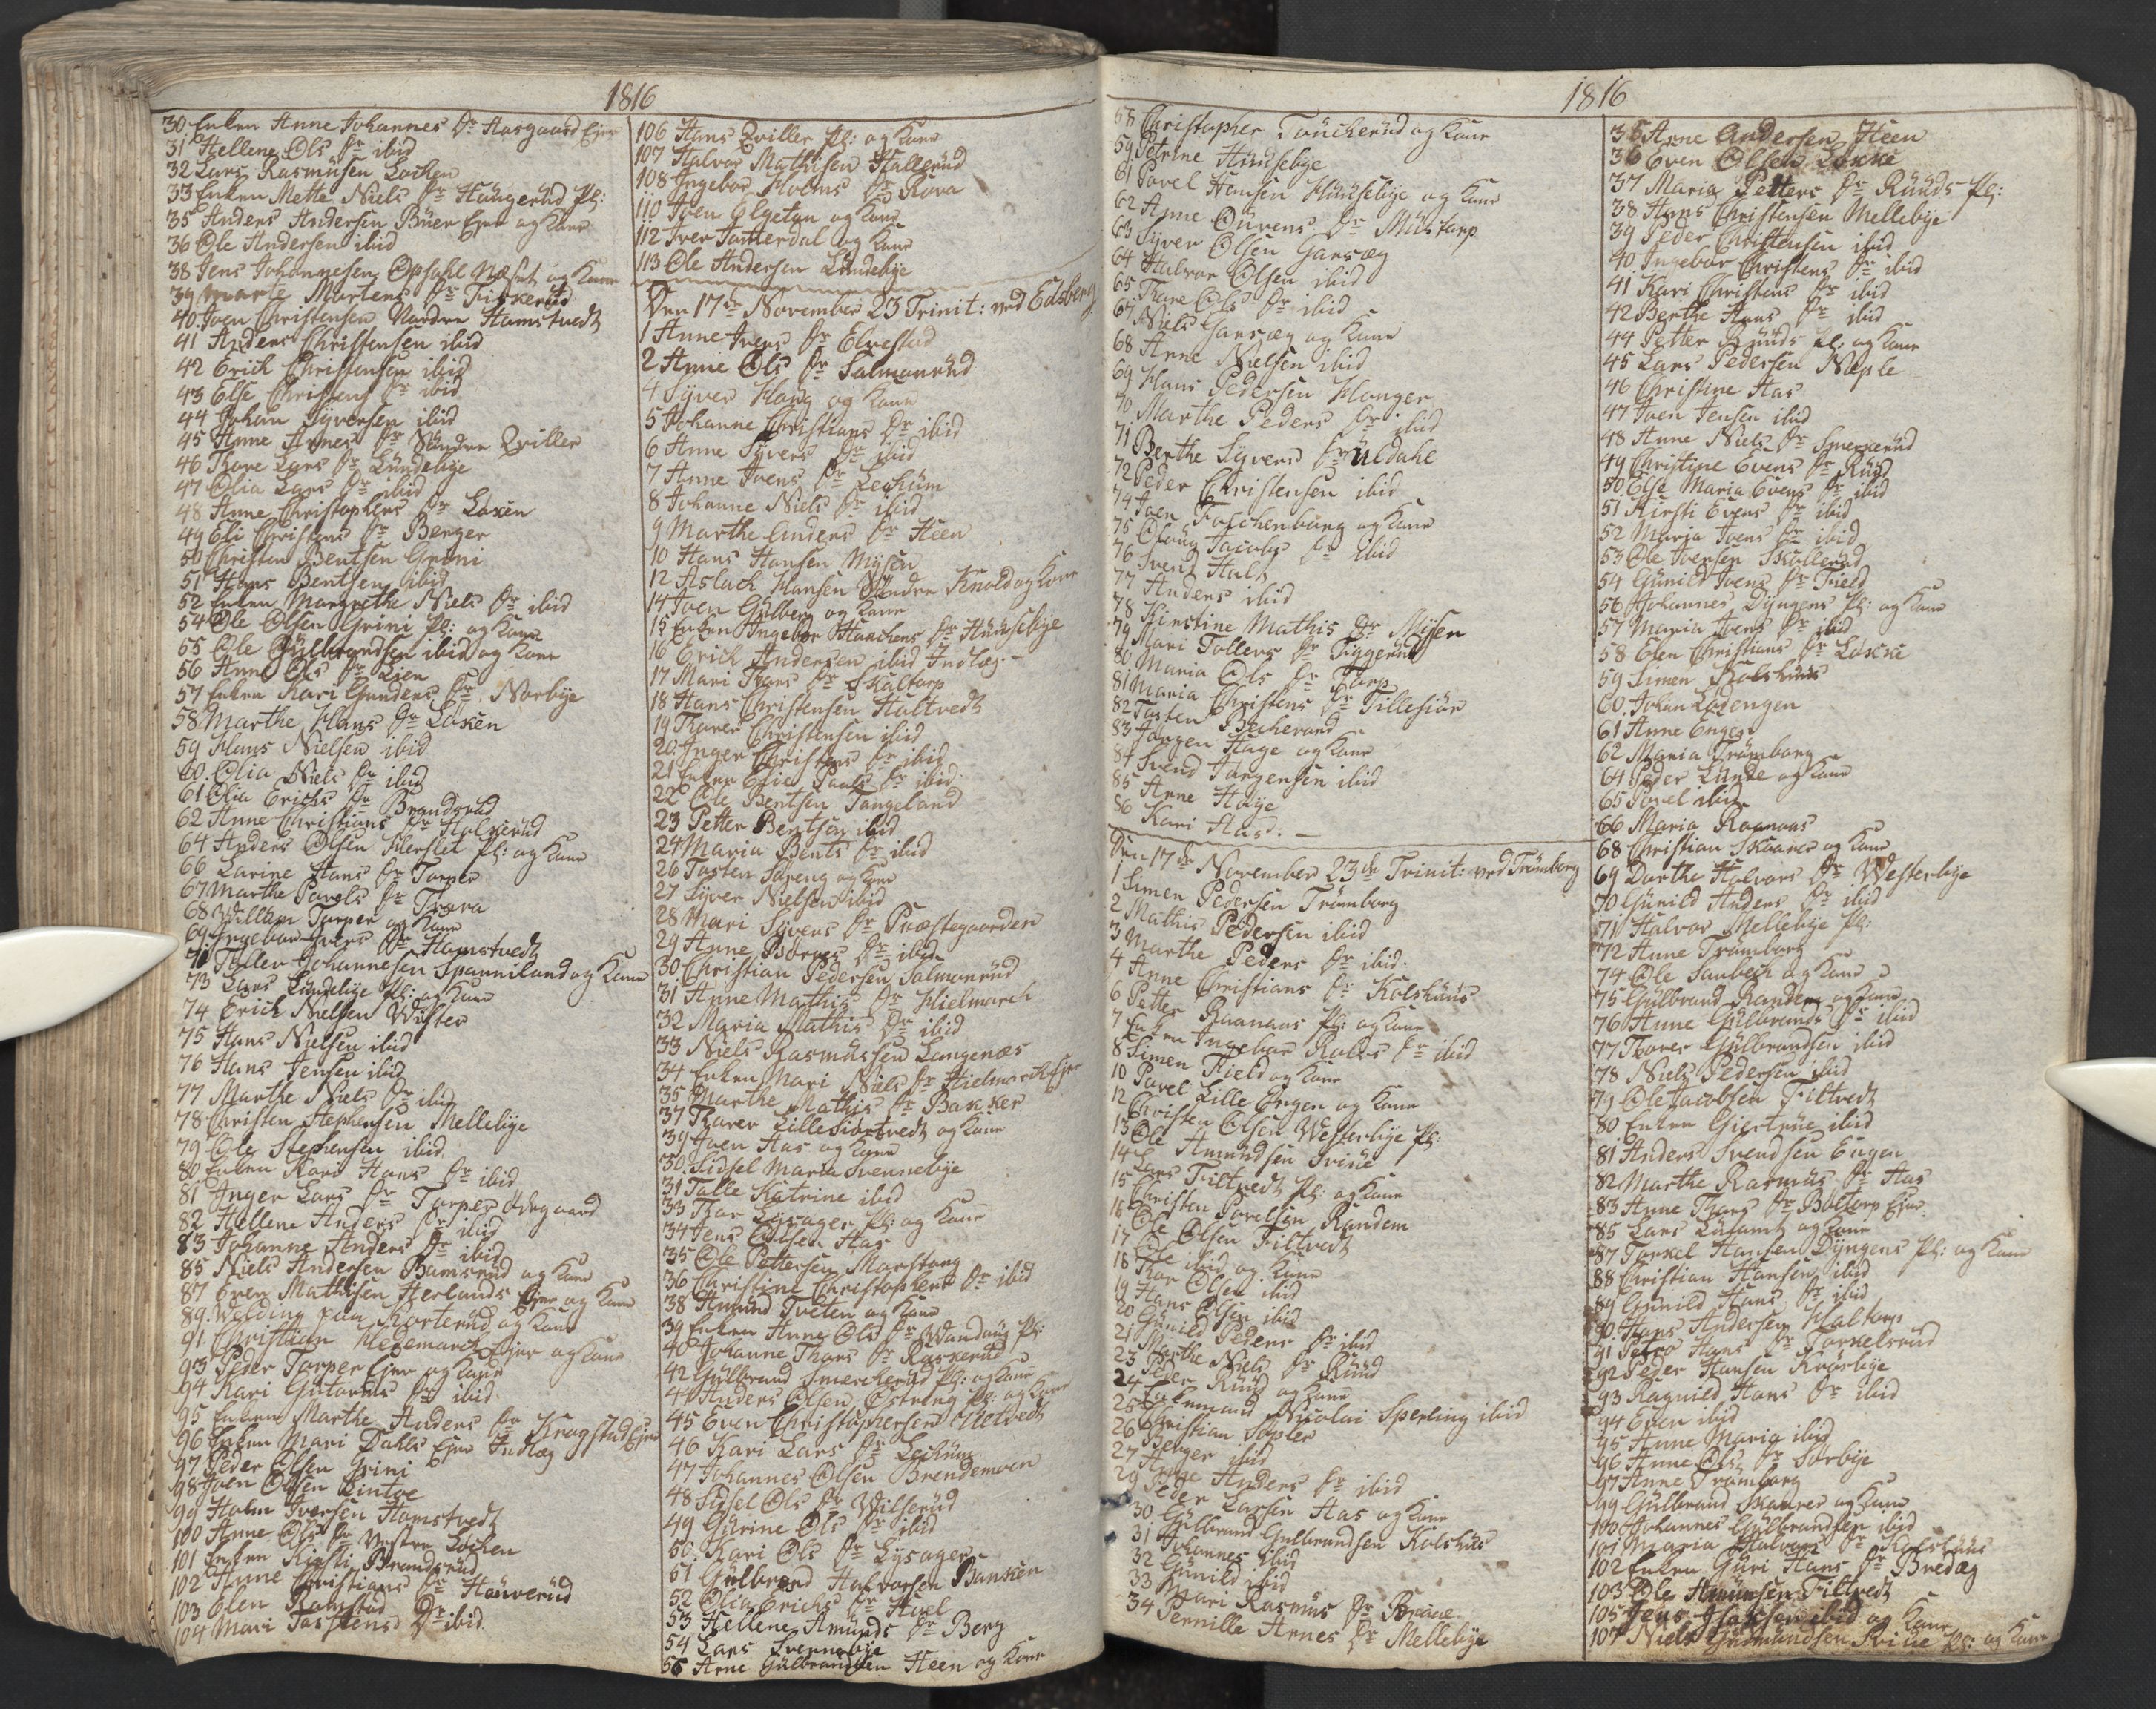 1816
30 Enken Anne Johannes Dr Aasgaard Ejer
31 Hellene Ols Dr ibid
32 Lars Rasmusen Locken
33 Enken Mette Niels Dr Haugerud Pl:
35 Anders Andersen Buer Ejer og Kone
36 Ole Andersen ibid
38 Jens Johannesen Opsahl Næset og Kone
39 Marte Martens Dr Fiskerud
40 Joen Christensen Nordre Hamstvedt
41 Anders Christensen ibid
42 Erich Christensen ibid
43 Else Christens Dr ibid
44 Johan Syversen ibid
45 Anne Arnes Dr Søndre Qviller
46 Thore Lars Dr Lundebye
47 Olia Lars Dr ibid
48 Anne Christophers Dr Løxen
49 Eli Christens Dr Berger
50 Christen Bentsen Grini
51 Hans Bentsen ibid
52 Enken Margrethe Niels Dr ibid
54 Ole Olsen Grini Pl: og Kone
55 Ole Gulbrandsen ibid og Kone
56 Anne Ols Dr Lien
57 Enken Kari Gunders Dr Norbye
58 Marthe Hans Dr Løxen
59 Hans Nielsen ibid
60. Olia Niels Dr ibid
61 Olia Erichs Dr Brandsrud
62 Anne Christians Dr Holserud
64 Anders Olsen Slerslet Pl: og Kone
66 Larine Hans Dr Torper
67 Marthe Povels Dr Trøra
68 Willum Torper og Kone
69 Ingebor Ivers Dr Hamstvedt
71 Toller Johannesen Spanniland og Kone
73 Lars Lundebye Pl: og Kone
74 Erich Nielsen Wister
75 Hans Nielsen ibid
76 Hans Jensen ibid
77 Marthe Niels Dr ibid
78 Christen Stephensen Mellebye
79 Ole Stephensen ibid
80 Enken Kari Hans Dr ibid
81 Inger Lars Dr Torper Ødegaard
82 Hellene Anders Dr ibid
83 Johanne Anders Dr ibid
85 Niels Andersen Ramsrud og Kone
87 Even Mathisen Herlands Ejer og Kone
89. Welding paa Korterud og Kone
91 Christian Hedemarck Ejer og Kone
93 Peder Torper Ejer og Kone
94 Kari Gutorms Dr ibid
95 Enken Marthe Anders Dr Kragstad Ejer
96 Enken Mari Dahls Ejer Indlæg
97 Peder Olsen Grini
98 Joen Olsen Lintoe
99 Holm Iversen Hamstvedt
100 Anne Ols Dr Vestre Lochen
101 Enken Kirsti Brandsrud
102 Anne Christians Dr Houverud
103 Elen Ramstad
104 Mari Torstens Dr ibid
106 Hans Qviller Pl: og Kone
107 Halvor Mathisen Hallerud
108 Ingebor Holms Dr Rova
110 Joen Elgetun og Kone
112 Iver Totterdal og Kone
113 Ole Andersen Lundebye
Den 17de November 23 Trinit: ved Edsberg
1 Anne Ivers Dr Elvestad
2 Anne Ols Dr Salmonrud
4 Syver Haug og Kone
5 Johanne Christians Dr ibid
6 Anne Syvers Dr ibid
7 Anne Joens Dr Lechum
8 Johanne Niels Dr ibid
9 Marthe Anders Dr Heen
10 Hans Hansen Mysen
12 Aslach Hansen Søndre Knold og Kone
14 Joen Gulberg og Kone
15 Enken Ingebor Haachens Dr Huusebye
16 Erich Andersen ibid Indlæg.
17 Mari Ivers Dr Skaltorp
18 Hans Christensen Holtvedt
19 Thorer Christensen ibid
20 Inger Christens Dr ibid
21 Enken Elie Povels Dr ibid
22 Ole Bentsen Tangeland
23 Petter Bentsen ibid
24 Maria Bents Dr ibid
26 Tosten Spreng og Kone
27 Syver Nielsen ibid
28 Mari Syvers Dr Præstegaarden
29 Anne Borges Dr ibid
30 Christian Pedersen Salmonrud
31 Anne Mathis Dr Hielmarck
32 Maria Mathis Dr ibid
33 Niels Rasmussen Langenæs
34 Enken Mari Niels Dr Hielmarck Ejer
35 Marthe Mathis Dr Bakker
37 Thorer Lillesiortvedt og Kone
39 Joen Aas og Kone
30. Sidsel Maria Svennebye
31 Talle Katrine ibid
33 Thor Lysager Pl: og Kone
34 Jens Olsen Aas
35 Ole Pettersen Morstong
36 Christine Christophers Dr ibid
38 Amund Tveten og Kone
39 Enken Anne Ols Dr Wandoug Pl:
40 Johanne Thors Dr Raskerud
42 Gulbrand Smerckerud Pl: og Kone
44 Anders Olsen Østreng Pl: og Kone
45 Even Christophersen Netvedt
46 Kari Lars Dr Lechum
47 Johannes Olsen Brendemoen
48 Sidsel Ols Dr Wilserud
49 Gurine Ols Dr ibid
50. Kari Ols Dr Lysager
51 Gulbrand Halvorsen Banken
52 Olia Erichs Dr Huel
53 Hellene Amunds Dr Berg
54 Lars Svennebye
56 Arne Gulbrandsen Heen og Kone
1816
58 Christopher Toucherud og Kone
59 Petrine Huusebye
61 Povel Hansen Huusebye og Kone
62 Anne Ourens Dr Mustorp
63 Syver Olsen Gansæg
64 Halvor Olsen ibid
65 Thore Ols Dr ibid
67 Niels Gansæg og Kone
68 Arne Nielsen ibid
69 Hans Pedersen Honger
70 Marthe Peders Dr ibid
71 Berthe Syvers Dr Uldahl
72 Peder Christensen ibid
74 Joen Foschenborg og Kone
75 Oloug Jacobs Dr ibid
76 Svend Hals
77 Anders ibid
78 Kirstine Mathis Dr Mysen
79 Mari Tollers Dr Tiggerud
80 Maria Ols Dr Torp
81 Maria Christens Dr Tillesiør
82 Tosten Becherund
83 Jørgen Hage og Kone
84 Svend Jørgensen ibid
85 Arne Høye
86 Kari Aas. –
Den 17de November 23de Trinit: ved Trømborg
1 Simen Pedersen Trømborg
2 Mathis Pedersen ibid
3 Marthe Peders Dr ibid.
4 Anne Christians Dr Kolshuus
6 Petter Raanaas Pl: og Kone
7 Enken Ingebor Rolvs Dr ibid
8 Simen Field og Kone
10 Povel Lille Engen og Kone
12 Christen Olsen Westerbye Pl:
13 Ole Amundsen Sviue
14 Lars Filtvedt Pl: og Kone
15 Christen Povelsen Randem
16 Ole Olsen Filtvedt
17 Ole ibid og Kone
18 Thor Olsen ibid
19 Hans Olsen ibid
20 Gunild Peders Dr ibid
21 Marthe Niels Dr Ruud
23 Peder Ruud og Kone
24 Enkemand Nicolai Sperling ibid
25 Christian Sopler
26 Berger ibid
27 Inger Anders Dr ibid
29 Peder Larsen Aas og Kone
30 Gulbrand Gulbrandsen Kolshus
31 Johannes ibid
32 Gunild ibid
33 Mari Rasmus Dr
34 Pernille Arnes Dr Mellebye
1816
35 Arne Andersen Heen
36 Even Olsen Løkke
37 Maria Petters Dr Ruuds Pl:
38 Hans Christensen Mellebye
39 Peder Christensen ibid
40 Ingebor Christens Dr ibid
41 Kari Christens Dr ibid
42 Berthe Hans Dr ibid
44 Petter Ruuds Pl: og Kone
45 Lars Pedersen Næple
46 Christine Aas
47 Joen Jensen ibid
48 Anne Niels Dr Smerkerud
49 Christine Evens Dr Ruud
50 Else Maria Evens Dr ibid
51 Kirsti Evens Dr ibid
52 Maria Joens Dr ibid
53 Ole Joensen Skollerud
54 Gunild Joens Dr Field
56 Johannes Dyngens Pl: og Kone
57 Maria Joens Dr ibid
58 Elen Christians Dr Løkke
59 Simen Kolshuus
60. Johan Lødengen
61 Anne Engen
62 Maria Trømborg
64 Peder Lunde og Kone
65 Povel ibid
66 Maria Raanaas
68 Christian Skaarer og Kone
69 Dorthe Halvors Dr Westerbye
70 Gunild Anders Dr ibid
71 Halvor Mellebye Pl:
72 Anne Trømborg
74 Ole Saubech og Kone
75 Gulbrand Randem og Kone
76 Anne Gulbrands Dr ibid
77 Thorer Gulbrandsen ibid
78 Niels Pedersen ibid
79 Ole Jacobsen Filtvedt
80 Enken Giertrue ibid
81 Anders Svendsen Engen
82 Marthe Rasmus Dr Aas
83 Anne Thors Dr Boltorp Ejer.
85 Lars Lusamt og Kone
87 Torkel Hansen Dyngens Pl: og Kone
88 Christian Hansen ibid
89 Gunild Hans Dr ibid
90. Hans Andersen Haltorp
91 Petro Hans Dr Torkelsrud
92 Peder Hansen Krosbye
93 Ragnild Hans Dr ibid
94 Even ibid
95 Anne Maria ibid
96 Anne Ols Dr Sørbye
97 Anne Trømborg
99 Gulbrand Skaarer og Kone
100 Johannes Gulbrandsen ibid
101 Maria Halvors Dr Kolshuus
102 Enken Guri Hans Dr Bredæg
103 Ole Amunsen Filtvedt
105 Jens Isacsen ibid og Kone
107 Niels Gudmundsen Sviue Pl: og Kone